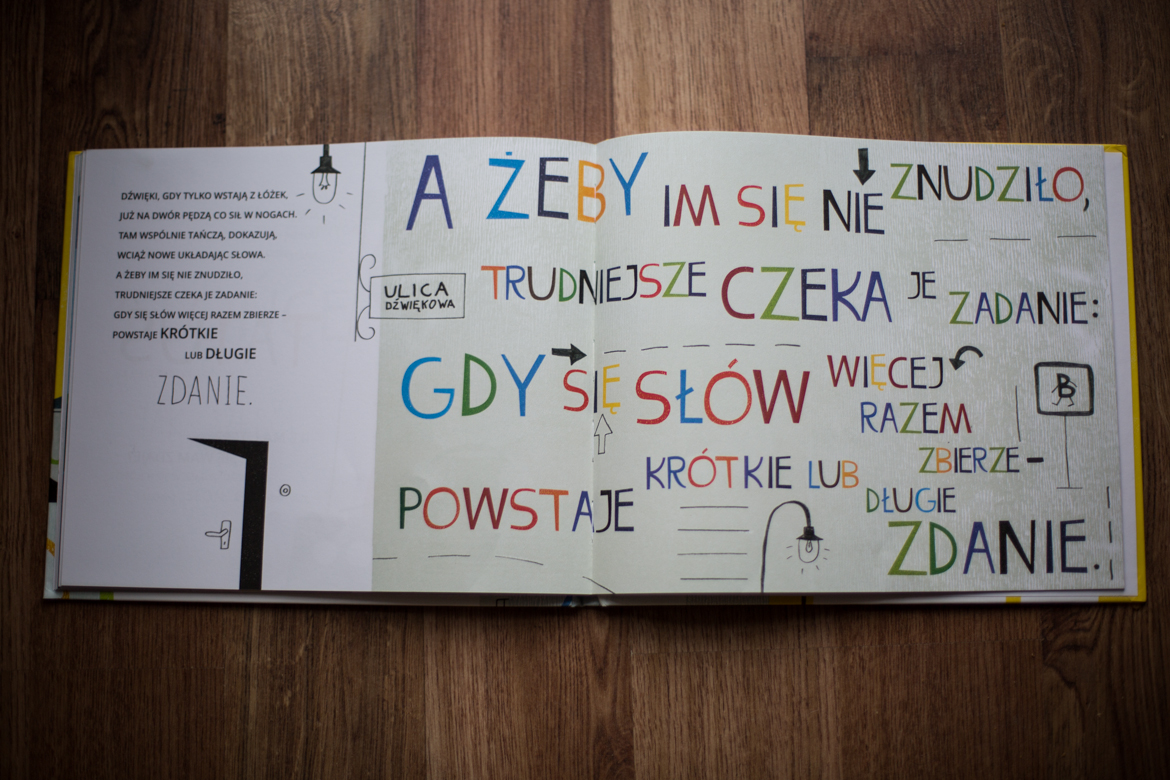 DŹWIĘKI, GDY TYLKO WSTAJĄ Z ŁÓŻEK,
JUŻ NA DWÓR PĘDZĄ CO SIŁ W NOGACH.
TAM WSPÓLNIE TAŃCZĄ, DOKAZUJĄ,
WCIĄŻ NOWE UKŁADAJĄC SŁOWA.
A ŻEBY IM SIĘ NIE ZNUDZIŁO,
TRUDNIEJSZE CZEKA JE ZADANIE:
GDY SIĘ SŁÓW WIĘCEJ RAZEM ZBIERZE –
POWSTAJE KRÓTKIE
LUB DŁUGIE
ZDANIE.
ULICA
DŹWIĘKOWA
A ŻEBY IM SIĘ NIE ZNUDZIŁO,
TRUDNIEJSZE CZEKA JE ZADANIE:
GDY SIĘ SŁÓW WIĘCEJ
RAZEM
ZBIERZE –
POWSTAJE KRÓTKIE LUB
DŁUGIE
ZDANIE.
B